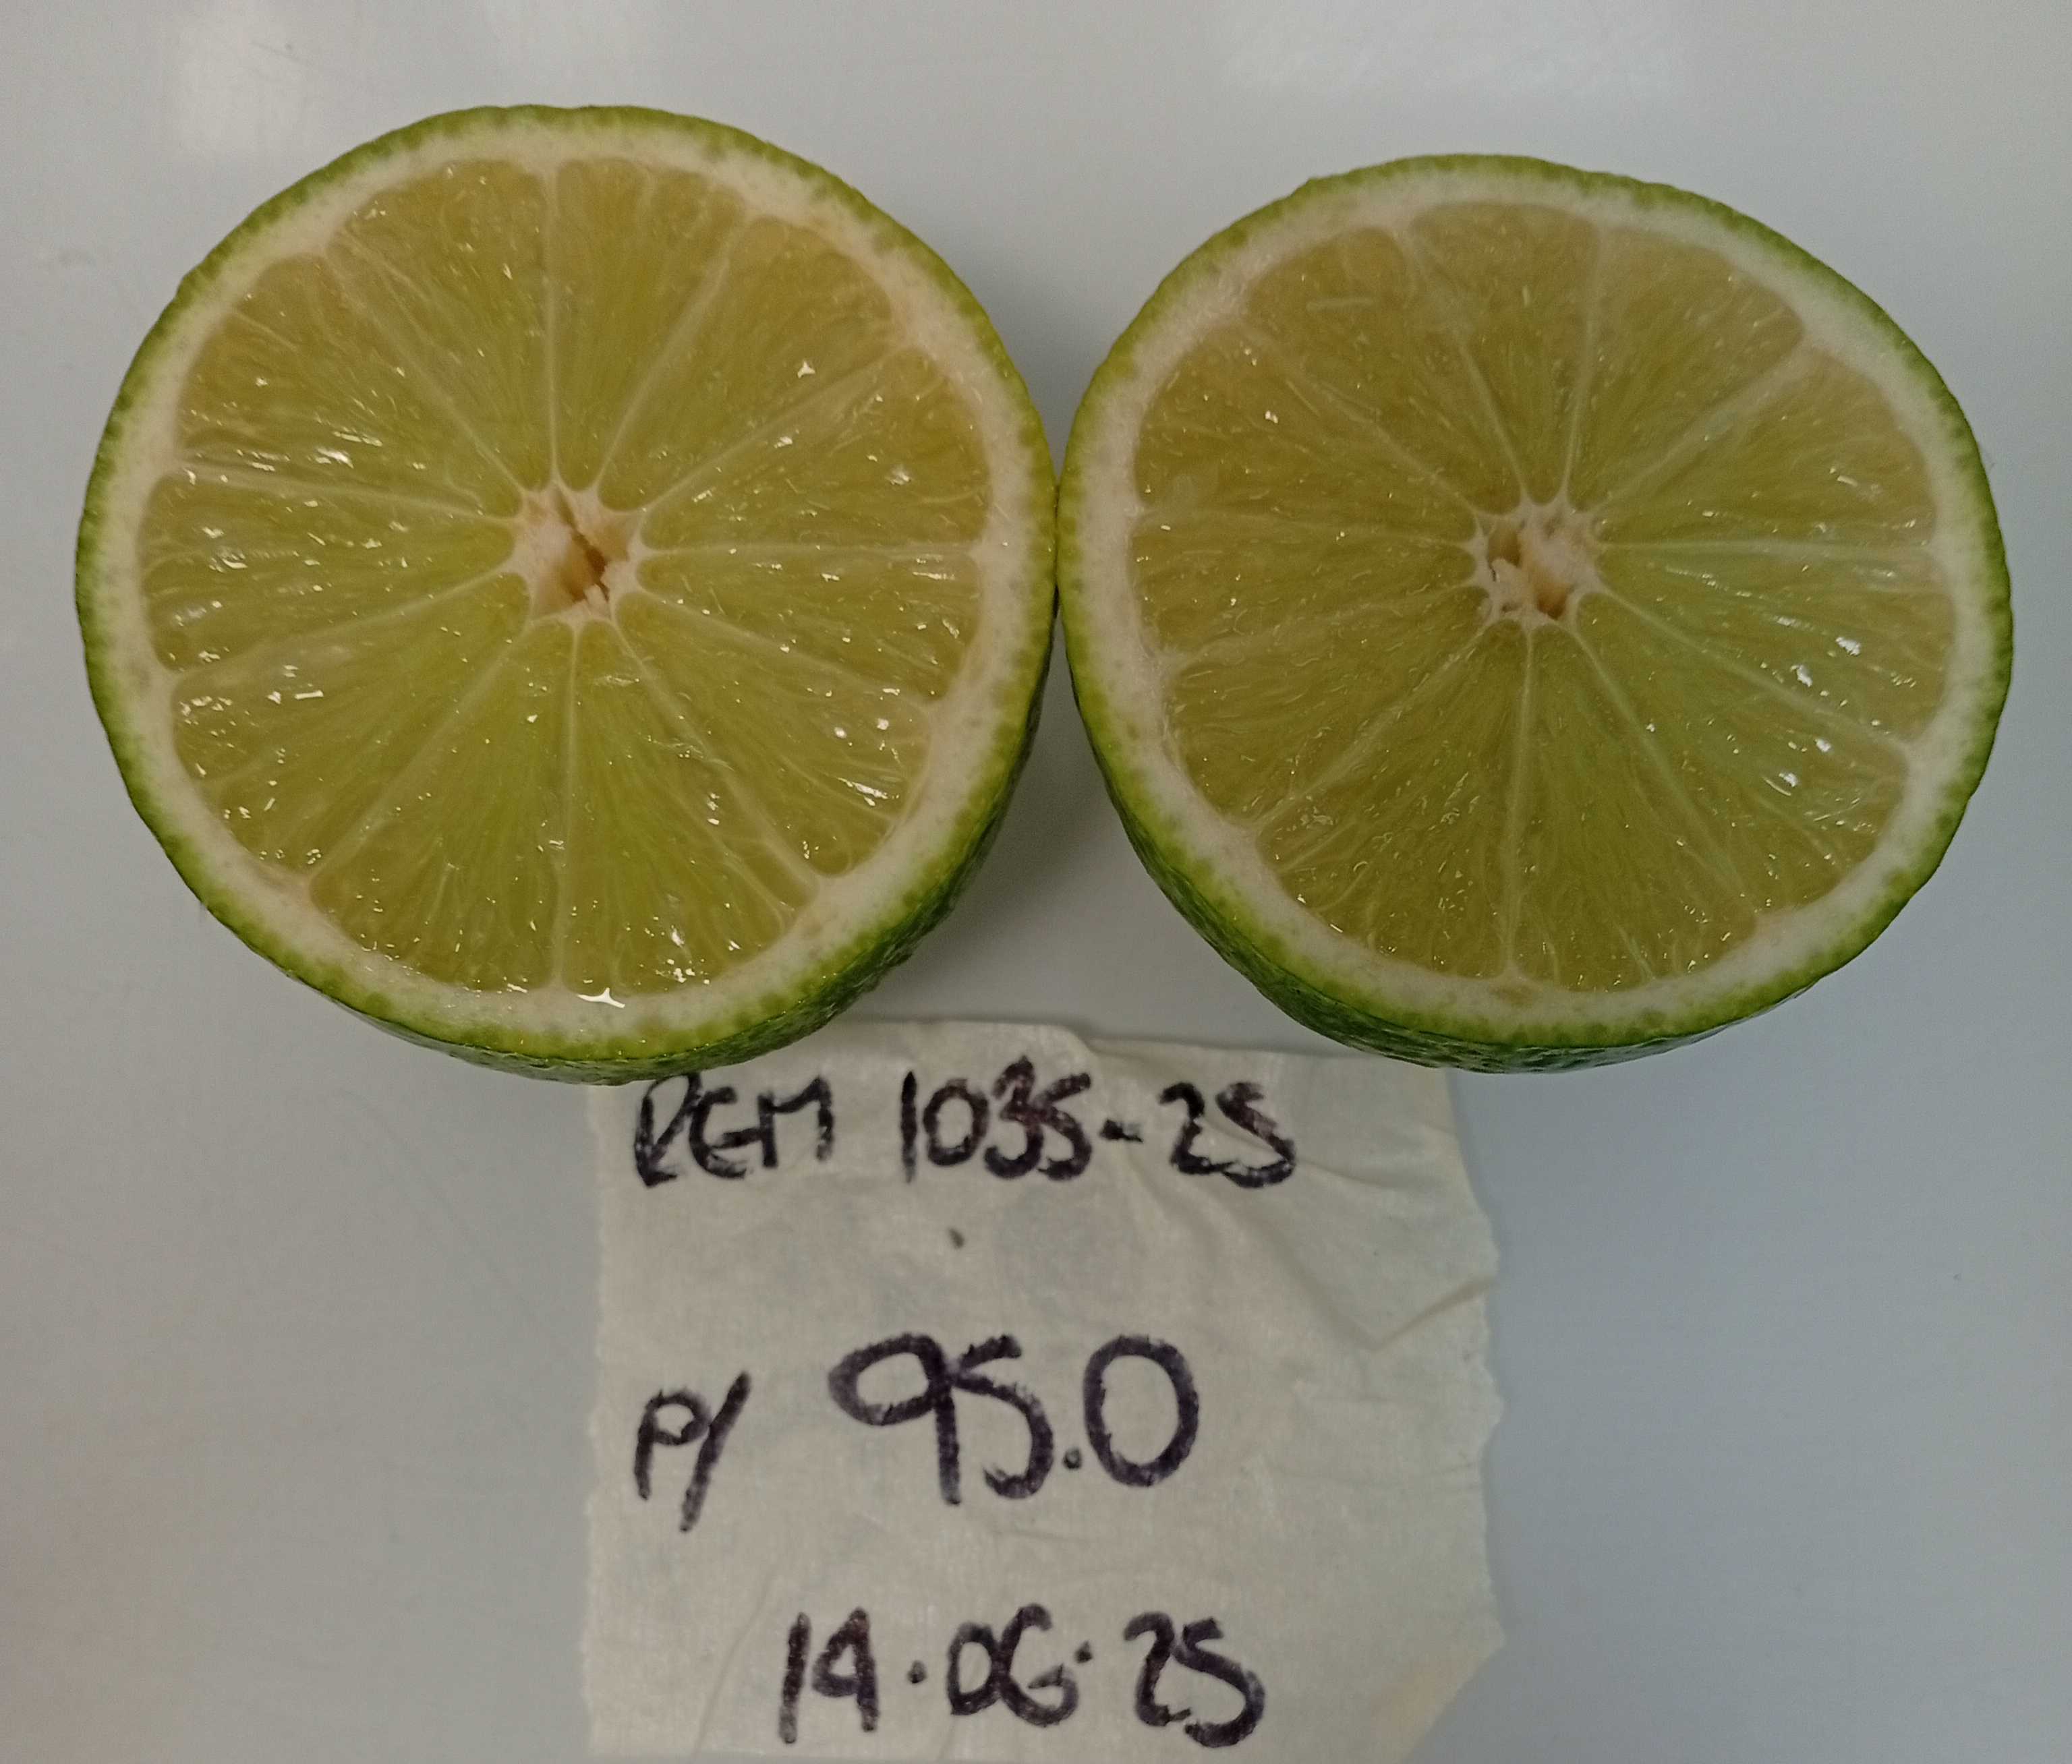 REM 1035-25
P/ 95.0
14.06.25